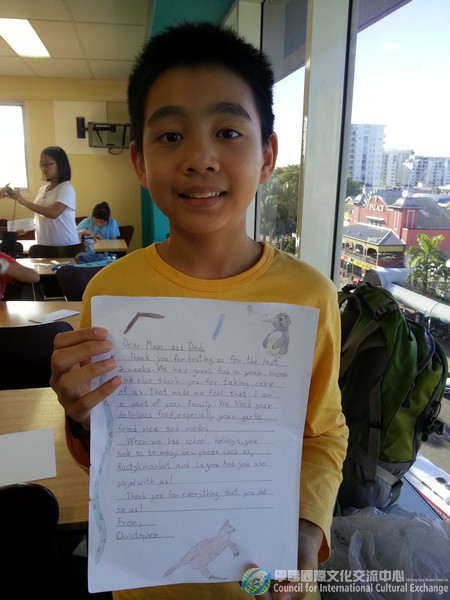 PALACE
Dear Mum and Dad,
Thank you for hosting us for the last
2 weeks. We had great fun in your home
We also thank you for taking care
of us. That made me feel that I am
a part of your family. We liked your
delicious food, especially your garlic
fried rice and noodles.
When we had school holidays, you
took us to many new places such as,
Rusty's market and Lagoon. And you also
played with us!
Thank you for everything that you did
to us!
From,
Christopher
學聯國際文化交流中心
Council for International Cultural Exchange